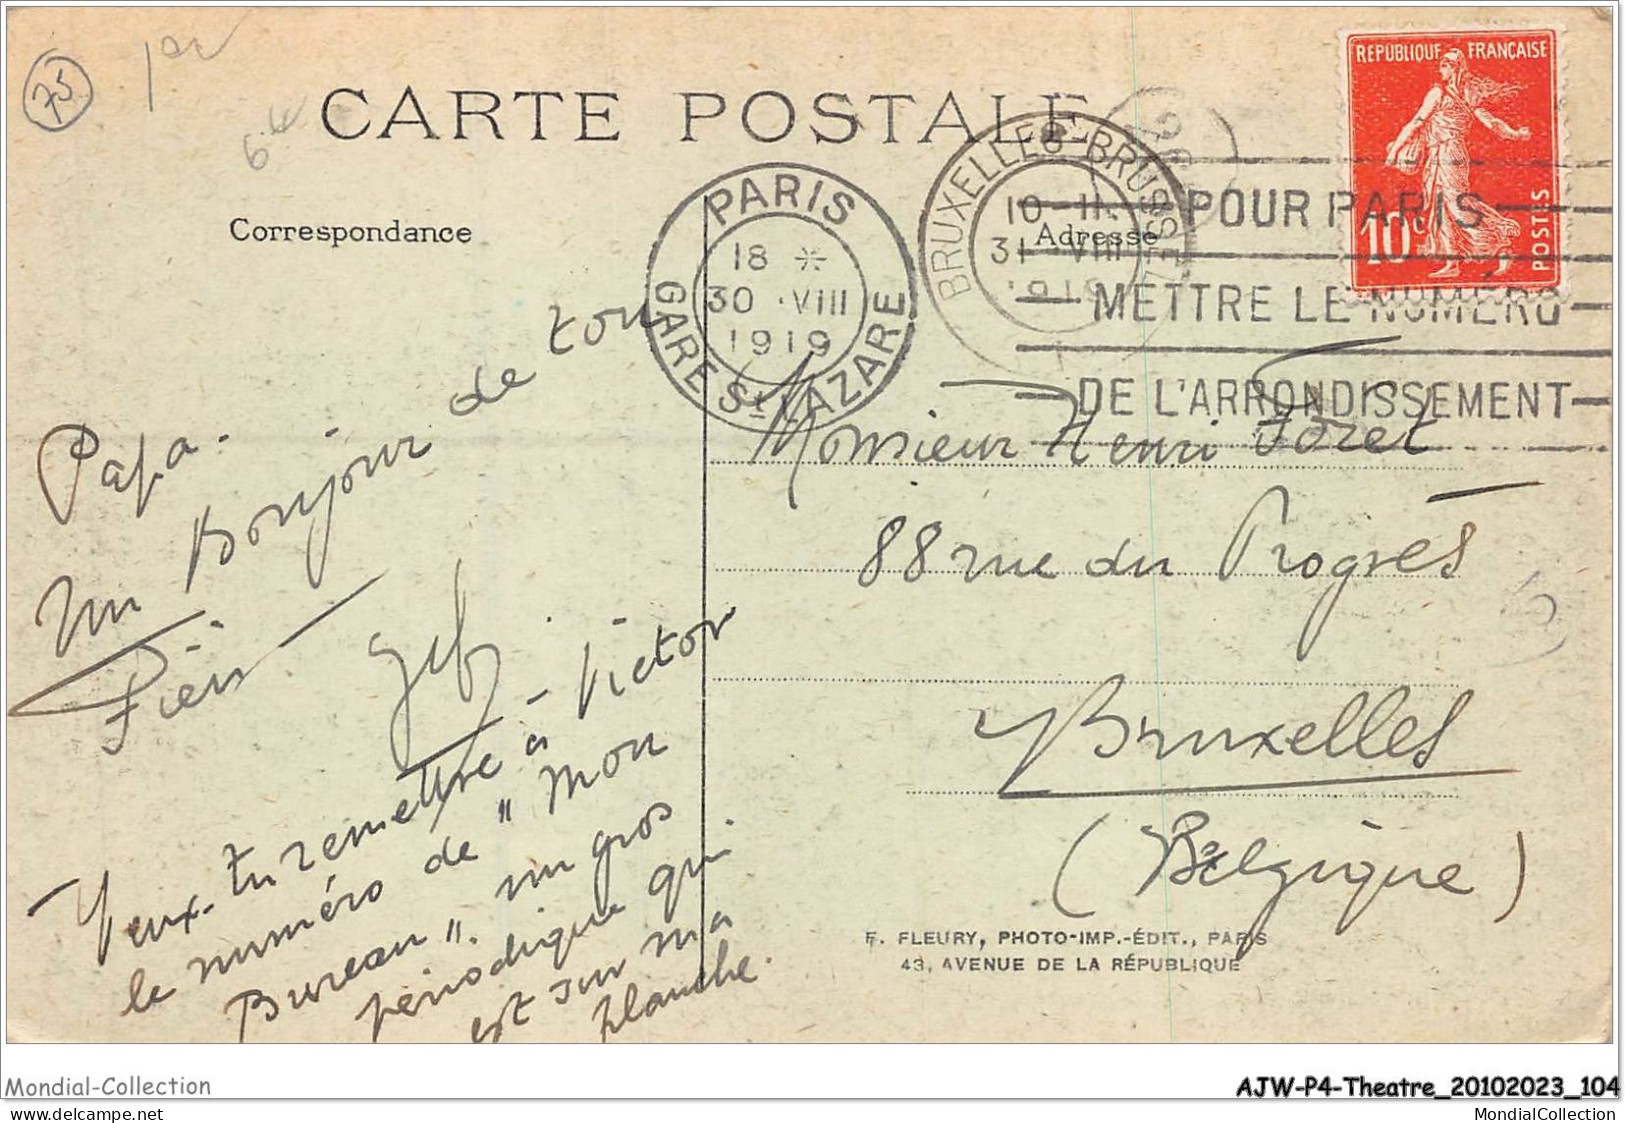 75
CARTE POSTALE
REPUBLIQUE FRANÇAISE
10c
POSTES
Correspondance
Adresse
PARIS
18 *
30 · VIII
1919
GARE St LAZARE
BRUXELLES-BRUSSEL
10-11
31 VIII
1919
POUR PARIS
METTRE LE NUMÉRO
DE L'ARRONDISSEMENT
Papa.
Un bonjour de ton
Fién
Veux-tu remettre à Victor
le numéro de "Mon
Bureau". un gros
périodique qui
est sur ma
planche.
Monsieur Henri Foret
88 rue du Progrès
Bruxelles
(Belgique)
F. FLEURY, PHOTO-IMP.-ÉDIT., PARIS
43, AVENUE DE LA RÉPUBLIQUE
Mondial-Collection
AJW-P4-Theatre_20102023_104
www.delcampe.net
MondialCollection